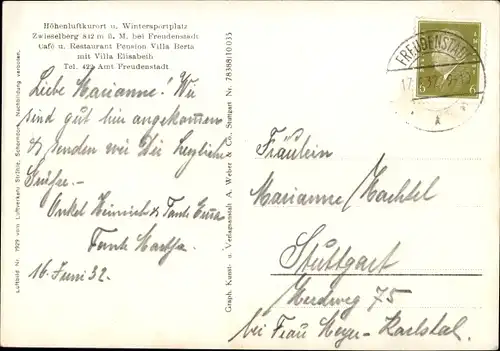 Höhenluftkurort u. Wintersportplatz
Zwieselberg 842 m ü. M. bei Freudenstadt
Café u. Restaurant Pension Villa Berta
mit Villa Elisabeth
Tel. 422 Amt Freudenstadt
Liebe Marianne! Wir
sind gut hier angekommen
& senden wir Dir herzliche
Grüße.–
Onkel Heinrich & Tante Emma
Tante Martha.
16. Juni 32.
Luftbild Nr. 7929 vom Luftverkehr Strähle, Schorndorf. Nachbildung verboten.
Graph. Kunst- u. Verlagsanstalt A. Weber & Co., Stuttgart Nr. 78388|10 035
FREUDENSTADT
6 6
Fräulein
Marianne Machtel
Stuttgart
Herdweg 75
bei Frau Meyer-Karlstal.